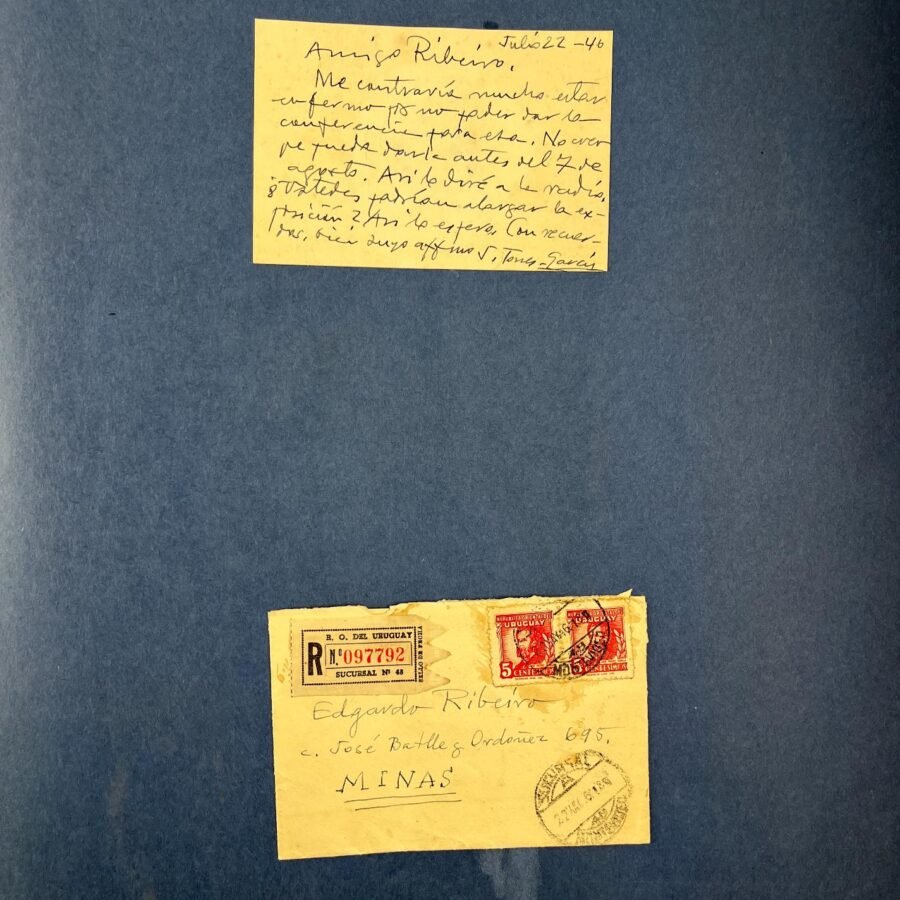 Julio 22 - 46
Amigo Ribeiro.
Me contraría mucho estar
enfermo y no poder dar la
conferencia para esa. No creo
pe pueda darla antes del 7 de
agosto. Así lo diré a la radio.
Ustedes podrían alargar la ex-
posición? Así lo espero. Con recuer-
dos, bien suyo affmo J. Torres-García
R. O. DEL URUGUAY
R N.º 097792
SUCURSAL Nº 48
REPUBLICA ORIENTAL DEL
URUGUAY
5
URUGUAY
5
Edgardo Ribeiro
c. José Batlle y Ordoñez 695.
MINAS
SUCURSAL
MONTEVIDEO